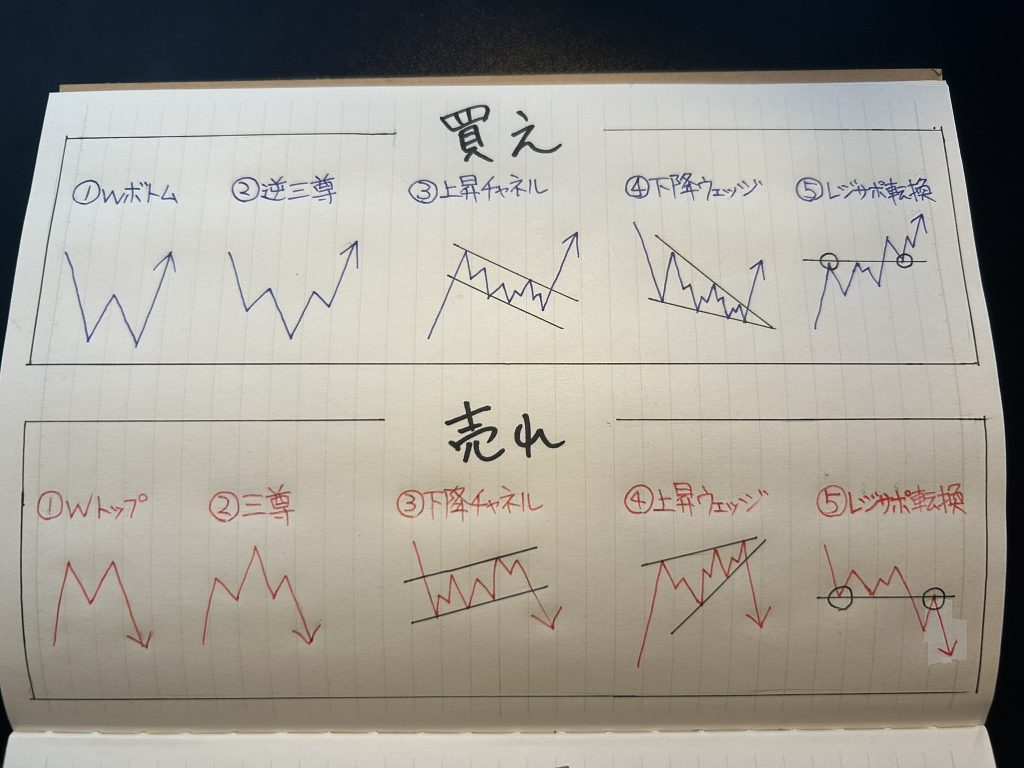 買え
①Wボトム ②逆三尊 ③上昇チャネル ④下降ウェッジ ⑤レジサポ転換
売れ
①Wトップ ②三尊 ③下降チャネル ④上昇ウェッジ ⑤レジサポ転換